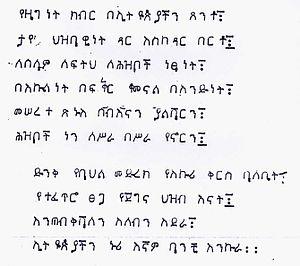 የዜግነት ክብር በኢትዮጵያችን ጸንቶ፤
ታየ ህዝባዊነት ዳር እስከዳር በርቶ፤
ለሰላም ለፍትህ ለሕዝቦች ነፃነት፤
በእኩልነት በፍቅር ቆመናል በአንድነት፤
መሠረተ ጽኑ ሰብዕናን ያልሻርን፤
ሕዝቦች ነን ለሥራ በሥራ የኖርን፤
ድንቅ የባህል መድረክ የአኩሪ ቅርስ ባለቤት፤
የተፈጥሮ ፀጋ የጀግና ህዝብ እናት፤
እንጠብቅሻለን አለብን አደራ፤
ኢትዮጵያችን ኑሪ እኛም ባንቺ እንኩራ፡፡